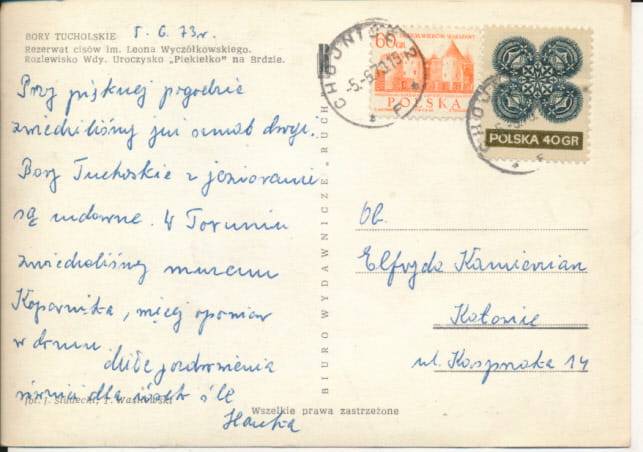 5.6.73r.
BORY TUCHOLSKIE
Rezerwat cisów im. Leona Wyczółkowskiego.
Rozlewisko Wdy. Uroczysko „Piekiełko" na Brdzie.
Przy pięknej pogodzie
zwiedziliśmy już drogi.
Bory Tucholskie z jeziorami
są cudowne. W Toruniu
zwiedzaliśmy muzeum
Kopernika, więcej opowiem
w domu.
Miłe pozdrowienia
dla
Hanka
fot. J. Siudecki,
Wszelkie prawa zastrzeżone
BIURO WYDAWNICZE „RUCH"
CHOJNICE 2
-5.-6.73.15
60 GR
POLSKA
CHOJN
POLSKA 40 GR
Ob.
Elfryda Kamienian
Katowice
ul. 14